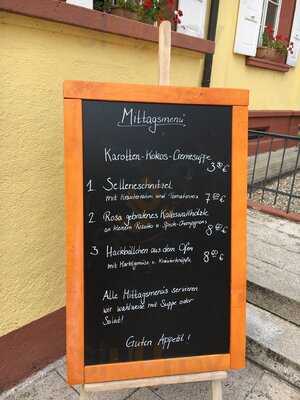 Mittagsmenü
Karotten-Kokos-Cremesuppe
3,50 €
1 Sellerieschnitzel
mit Kräuterrahm und Tomatenreis
7,50 €
2 Rosa gebratenes Kalbs
an kleinem Risotto u. Speck-Champignons
8,50 €
3 Hackbällchen aus dem Ofen
mit Marktgemüse u. Kräuterknöpfle
8,00 €
Alle Mittagsmenüs servieren
wir wahlweise mit Suppe oder
Salat!
Guten Appetit!